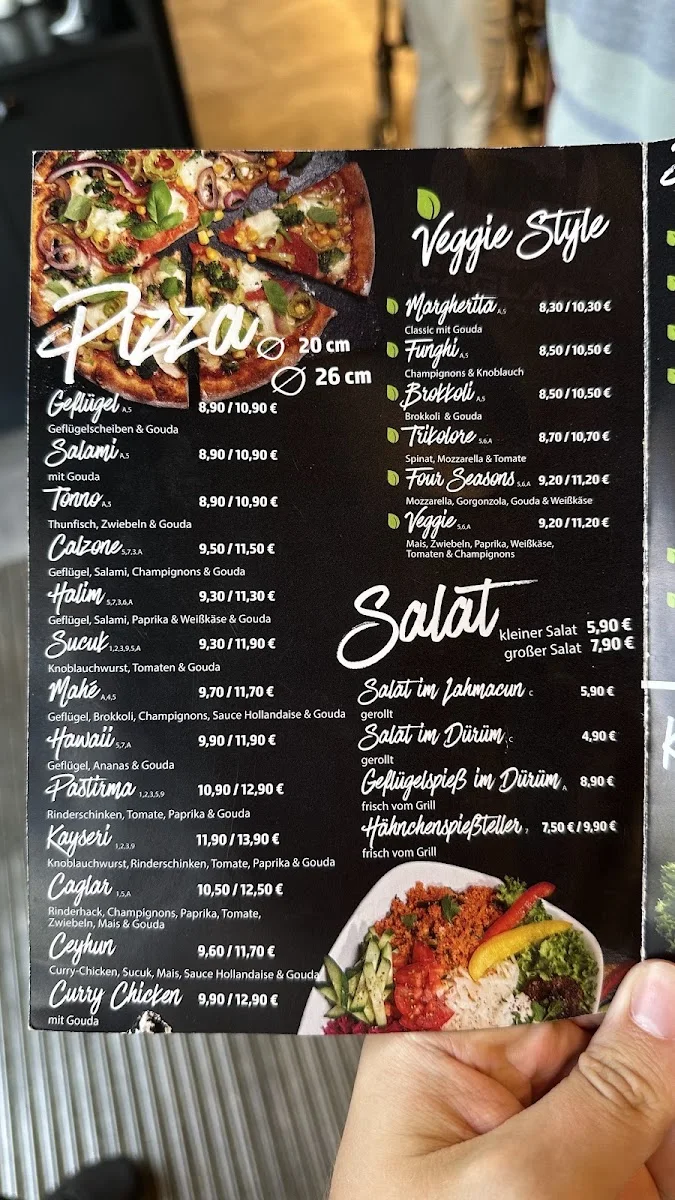 Pizza
⌀ 20 cm
⌀ 26 cm
Geflügel A,5 8,90 / 10,90 €
Geflügelscheiben & Gouda
Salami A,5 8,90 / 10,90 €
mit Gouda
Tonno A,5 8,90 / 10,90 €
Thunfisch, Zwiebeln & Gouda
Calzone 5,7,3,A 9,50 / 11,50 €
Geflügel, Salami, Champignons & Gouda
Halim 5,7,3,6,A 9,30 / 11,30 €
Geflügel, Salami, Paprika & Weißkäse & Gouda
Sucuk 1,2,3,9,5,A 9,30 / 11,90 €
Knoblauchwurst, Tomaten & Gouda
Mahé A,4,5 9,70 / 11,70 €
Geflügel, Brokkoli, Champignons, Sauce Hollandaise & Gouda
Hawaii 5,7,A 9,90 / 11,90 €
Geflügel, Ananas & Gouda
Pastirma 1,2,3,5,9 10,90 / 12,90 €
Rinderschinken, Tomate, Paprika & Gouda
Kayseri 1,2,3,9 11,90 / 13,90 €
Knoblauchwurst, Rinderschinken, Tomate, Paprika & Gouda
Caglar 1,5,A 10,50 / 12,50 €
Rinderhack, Champignons, Paprika, Tomate,
Zwiebeln, Mais & Gouda
Ceyhun 9,60 / 11,70 €
Curry-Chicken, Sucuk, Mais, Sauce Hollandaise & Gouda
Curry Chicken 9,90 / 12,90 €
mit Gouda
Veggie Style
Margheritta A,5 8,30 / 10,30 €
Classic mit Gouda
Funghi A,5 8,50 / 10,50 €
Champignons & Knoblauch
Brokkoli A,5 8,50 / 10,50 €
Brokkoli & Gouda
Trikolore 5,6,A 8,70 / 10,70 €
Spinat, Mozzarella & Tomate
Four Seasons 5,6,A 9,20 / 11,20 €
Mozzarella, Gorgonzola, Gouda & Weißkäse
Veggie 5,6,A 9,20 / 11,20 €
Mais, Zwiebeln, Paprika, Weißkäse,
Tomaten & Champignons
Salat
kleiner Salat 5,90 €
großer Salat 7,90 €
Salat im Lahmacun C 5,90 €
gerollt
Salat im Dürüm C 4,90 €
gerollt
Geflügelspieß im Dürüm A 8,90 €
frisch vom Grill
Hähnchenspießteller 7,50 € / 9,90 €
frisch vom Grill